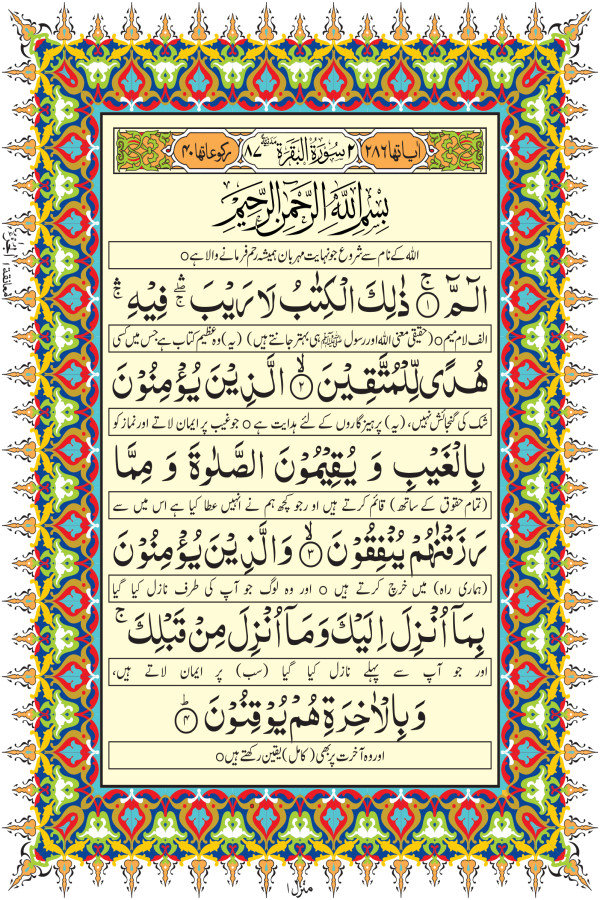 اٰیاتھا ۲۸۶ ۲ سُوْرَۃُ الْبَقَرَۃِ مَدَنِيَّةٌ ۸۷ رکوعاتھا ۴۰
بِسْمِ اللّٰهِ الرَّحْمٰنِ الرَّحِیْمِ
اللہ کے نام سے شروع جو نہایت مہربان ہمیشہ رحم فرمانے والا ہے ○
الٓمّٓ ۚ﴿۱﴾ ذٰلِكَ الْكِتٰبُ لَا رَیْبَ ۖۛ فِیْهِ ۛۚ
الف لام میم ○ (حقیقی معنی اللہ اور رسول ﷺ ہی بہتر جانتے ہیں) (یہ) وہ عظیم کتاب ہے جس میں کسی
هُدًی لِّلْمُتَّقِیْنَ ﴿۲﴾ۙ الَّذِیْنَ یُؤْمِنُوْنَ
شک کی گنجائش نہیں، (یہ) پرہیزگاروں کے لئے ہدایت ہے ○ جو غیب پر ایمان لاتے اور نماز کو
بِالْغَیْبِ وَ یُقِیْمُوْنَ الصَّلٰوةَ وَ مِمَّا
(تمام حقوق کے ساتھ) قائم کرتے ہیں اور جو کچھ ہم نے انہیں عطا کیا ہے اس میں سے
رَزَقْنٰهُمْ یُنْفِقُوْنَ ﴿۳﴾ۙ وَالَّذِیْنَ یُؤْمِنُوْنَ
(ہماری راہ) میں خرچ کرتے ہیں ○ اور وہ لوگ جو آپ کی طرف نازل کیا گیا
بِمَاۤ اُنْزِلَ اِلَیْكَ وَ مَاۤ اُنْزِلَ مِنْ قَبْلِكَ ۚ
اور جو آپ سے پہلے نازل کیا گیا (سب) پر ایمان لاتے ہیں،
وَ بِالْاٰخِرَةِ هُمْ یُوْقِنُوْنَ ﴿۴﴾ؕ
اور وہ آخرت پر بھی (کامل) یقین رکھتے ہیں ○
منزل ۱